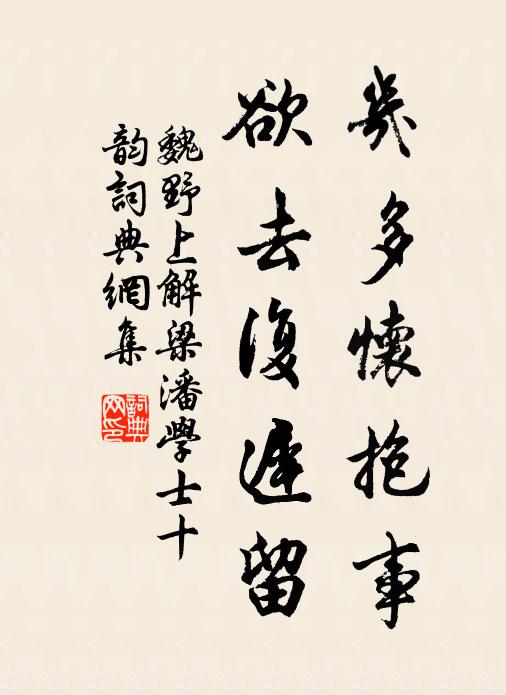 幾多懷抱事
欲去復遲留
魏野上解梁潘學士十
韵詞典網集
詞典網印